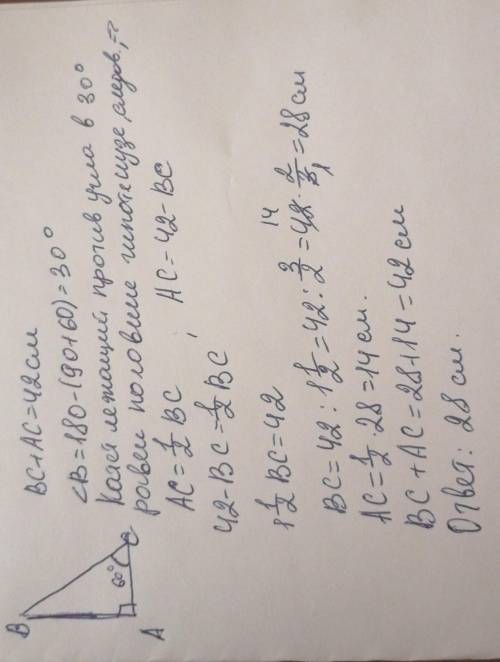 BC+AC=42см
∠B=180-(90+60)=30°
Катет лежащий против угла в 30°
равен половине гипотенузе, следов., =>
AC=1/2 BC, AC=42-BC
42-BC=1/2 BC
1 1/2 BC=42
BC=42:1 1/2=42:3/2=42·2/3=28см
14
1
AC=1/2·28=14см.
BC+AC=28+14=42см
Ответ: 28см.
B
60°
C
A